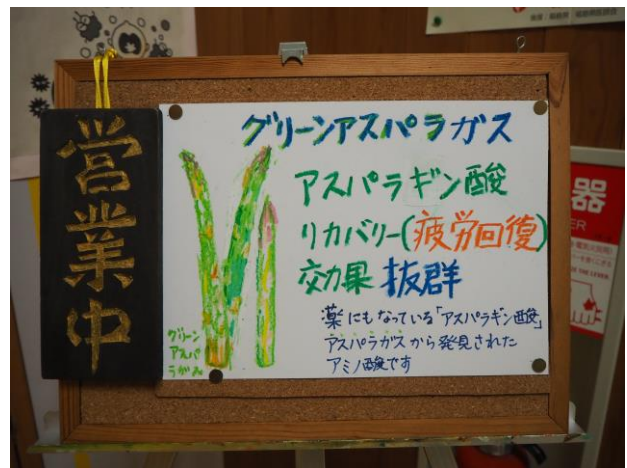 営業中
グリーンアスパラガス
アスパラギン酸
リカバリー(疲労回復)
効果 抜群
薬にもなっている「アスパラギン酸」
アスパラガスから発見された
アミノ酸です
グリーン
アスパ
らがス
器
ER